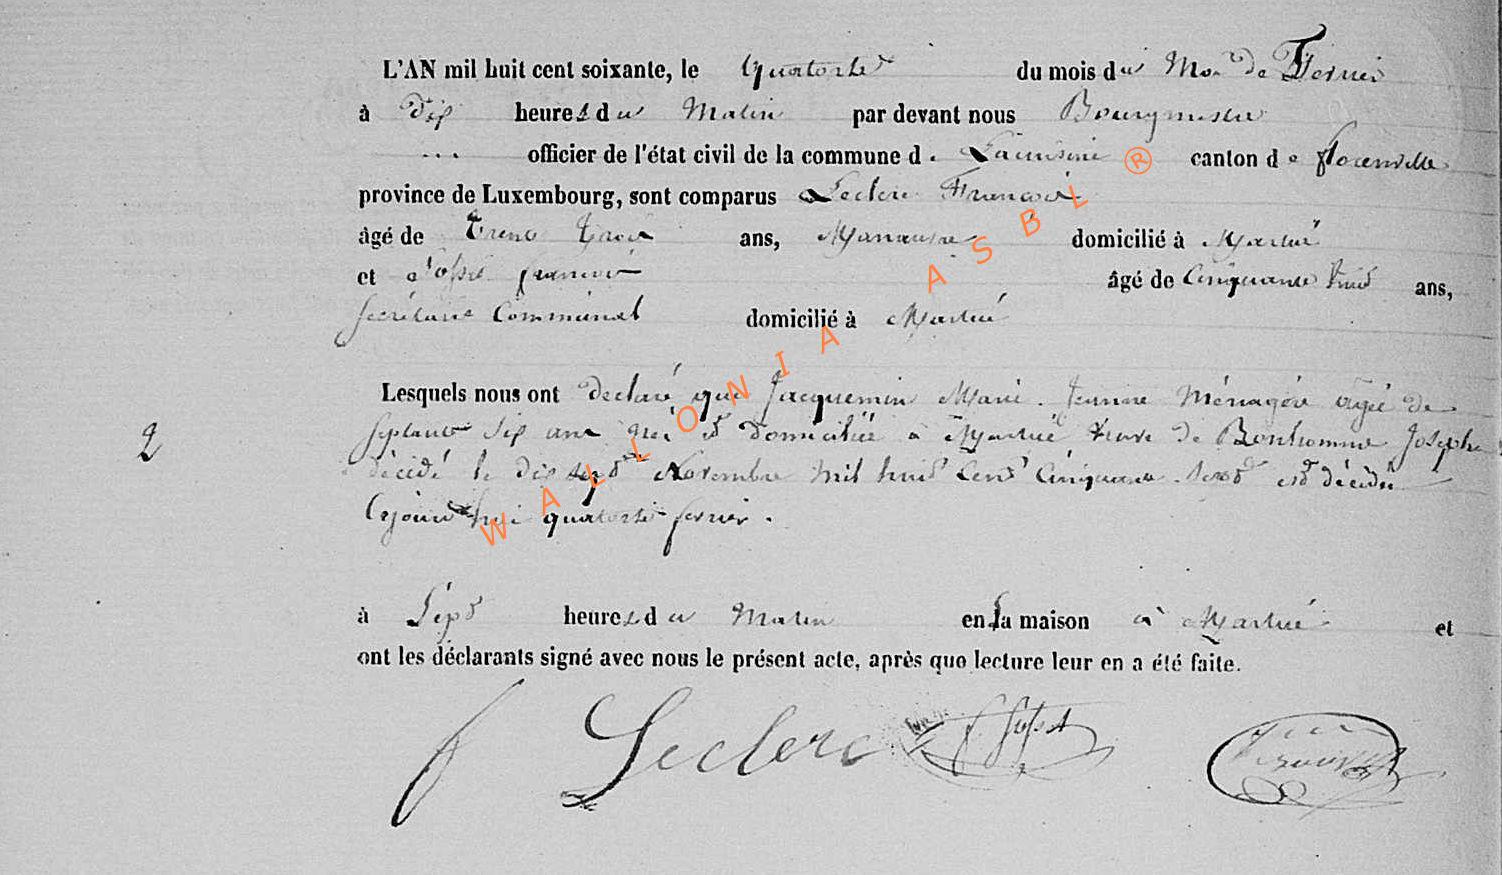 L'AN mil huit cent soixante, le quatorze du mois du Moi de Fevrier
à dix heures du Matin par devant nous Bourgmestre
officier de l'état civil de la commune de Lacuisine canton de florenville
province de Luxembourg, sont comparus Leclerc François
âgé de trente trois ans, Manœuvre domicilié à Martué
et françois âgé de Cinquante huit ans,
secrétaire Communal domicilié à Martué
Lesquels nous ont declaré que Jacquemin Marie Jeanne Ménagère âgée de
septante six ans née et domiciliée à Martué veuve de Bonhomme Joseph
décédé le dix sept Novembre mil huit cent cinquante sept est décédée
Cejourd'hui quatorze fevrier.
2
à Sept heures du Matin en sa maison à Martué et
ont les déclarants signé avec nous le présent acte, après que lecture leur en a été faite.
f Leclerc
WALLONIA ASBL ®